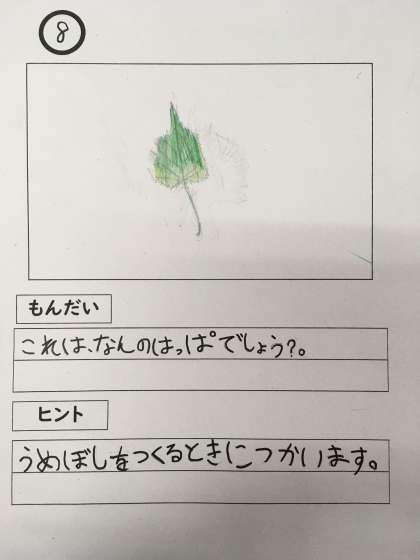 8
もんだい
これは、なんのはっぱでしょう?。
ヒント
うめぼしをつくるときにつかいます。